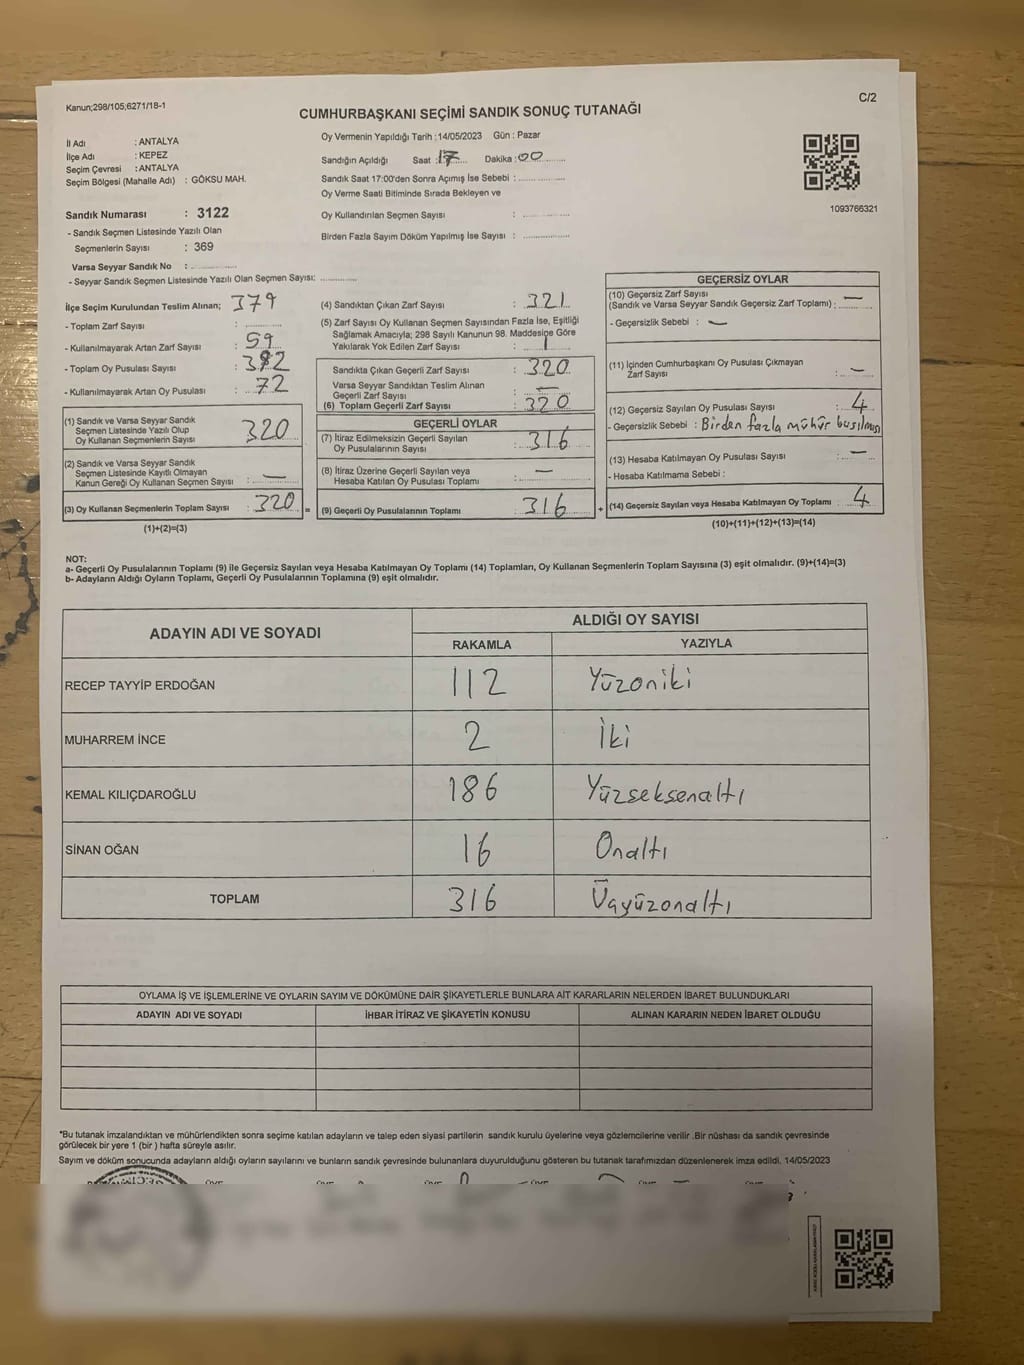 Kanun;298/105;6271/18-1
C/2
CUMHURBAŞKANI SEÇİMİ SANDIK SONUÇ TUTANAĞI
Oy Vermenin Yapıldığı Tarih :14/05/2023 Gün : Pazar
İl Adı : ANTALYA
İlçe Adı : KEPEZ
Seçim Çevresi : ANTALYA
Seçim Bölgesi (Mahalle Adı) : GÖKSU MAH.
Sandığın Açıldığı Saat : 17 Dakika : 00
Sandık Saat 17:00'den Sonra Açımış İse Sebebi :
Oy Verme Saati Bitiminde Sırada Bekleyen ve
Oy Kullandırılan Seçmen Sayısı :
Birden Fazla Sayım Döküm Yapılmış İse Sayısı :
1093766321
Sandık Numarası : 3122
- Sandık Seçmen Listesinde Yazılı Olan
Seçmenlerin Sayısı : 369
Varsa Seyyar Sandık No :
- Seyyar Sandık Seçmen Listesinde Yazılı Olan Seçmen Sayısı:
İlçe Seçim Kurulundan Teslim Alınan; 379
- Toplam Zarf Sayısı :
- Kullanılmayarak Artan Zarf Sayısı : 59
- Toplam Oy Pusulası Sayısı : 392
- Kullanılmayarak Artan Oy Pusulası : 72
(1) Sandık ve Varsa Seyyar Sandık
Seçmen Listesinde Yazılı Olup
Oy Kullanan Seçmenlerin Sayısı 320
(2) Sandık ve Varsa Seyyar Sandık
Seçmen Listesinde Kayıtlı Olmayan
Kanun Gereği Oy Kullanan Seçmen Sayısı : —
(3) Oy Kullanan Seçmenlerin Toplam Sayısı : 320 =
(1)+(2)=(3)
(4) Sandıktan Çıkan Zarf Sayısı : 321
(5) Zarf Sayısı Oy Kullanan Seçmen Sayısından Fazla İse, Eşitliği
Sağlamak Amacıyla; 298 Sayılı Kanunun 98. Maddesine Göre
Yakılarak Yok Edilen Zarf Sayısı : 1
Sandıkta Çıkan Geçerli Zarf Sayısı : 320
Varsa Seyyar Sandıktan Teslim Alınan
Geçerli Zarf Sayısı : —
(6) Toplam Geçerli Zarf Sayısı : 320
GEÇERLİ OYLAR
(7) İtiraz Edilmeksizin Geçerli Sayılan
Oy Pusulalarının Sayısı : 316
(8) İtiraz Üzerine Geçerli Sayılan veya
Hesaba Katılan Oy Pusulası Toplamı : —
(9) Geçerli Oy Pusulalarının Toplamı : 316 +
GEÇERSİZ OYLAR
(10) Geçersiz Zarf Sayısı
(Sandık ve Varsa Seyyar Sandık Geçersiz Zarf Toplamı) : —
- Geçersizlik Sebebi : —
(11) İçinden Cumhurbaşkanı Oy Pusulası Çıkmayan
Zarf Sayısı : —
(12) Geçersiz Sayılan Oy Pusulası Sayısı : 4
- Geçersizlik Sebebi : Birden fazla mühür basılması
(13) Hesaba Katılmayan Oy Pusulası Sayısı : —
- Hesaba Katılmama Sebebi :
(14) Geçersiz Sayılan veya Hesaba Katılmayan Oy Toplamı : 4
(10)+(11)+(12)+(13)=(14)
NOT:
a- Geçerli Oy Pusulalarının Toplamı (9) ile Geçersiz Sayılan veya Hesaba Katılmayan Oy Toplamı (14) Toplamları, Oy Kullanan Seçmenlerin Toplam Sayısına (3) eşit olmalıdır. (9)+(14)=(3)
b- Adayların Aldığı Oyların Toplamı, Geçerli Oy Pusulalarının Toplamına (9) eşit olmalıdır.
ADAYIN ADI VE SOYADI
ALDIĞI OY SAYISI
RAKAMLA YAZIYLA
RECEP TAYYİP ERDOĞAN 112 Yüzoniki
MUHARREM İNCE 2 İki
KEMAL KILIÇDAROĞLU 186 Yüzseksenaltı
SİNAN OĞAN 16 Onaltı
TOPLAM 316 Üçyüzonaltı
OYLAMA İŞ VE İŞLEMLERİNE VE OYLARIN SAYIM VE DÖKÜMÜNE DAİR ŞİKAYETLERLE BUNLARA AİT KARARLARIN NELERDEN İBARET BULUNDUKLARI
ADAYIN ADI VE SOYADI İHBAR İTİRAZ VE ŞİKAYETİN KONUSU ALINAN KARARIN NEDEN İBARET OLDUĞU
*Bu tutanak imzalandıktan ve mühürlendikten sonra seçime katılan adayların ve talep eden siyasi partilerin sandık kurulu üyelerine veya gözlemcilerine verilir .Bir nüshası da sandık çevresinde
görülecek bir yere 1 (bir ) hafta süreyle asılır.
Sayım ve döküm sonucunda adayların aldığı oyların sayılarını ve bunların sandık çevresinde bulunanlara duyurulduğunu gösteren bu tutanak tarafımızdan düzenlenerek imza edildi. 14/05/2023